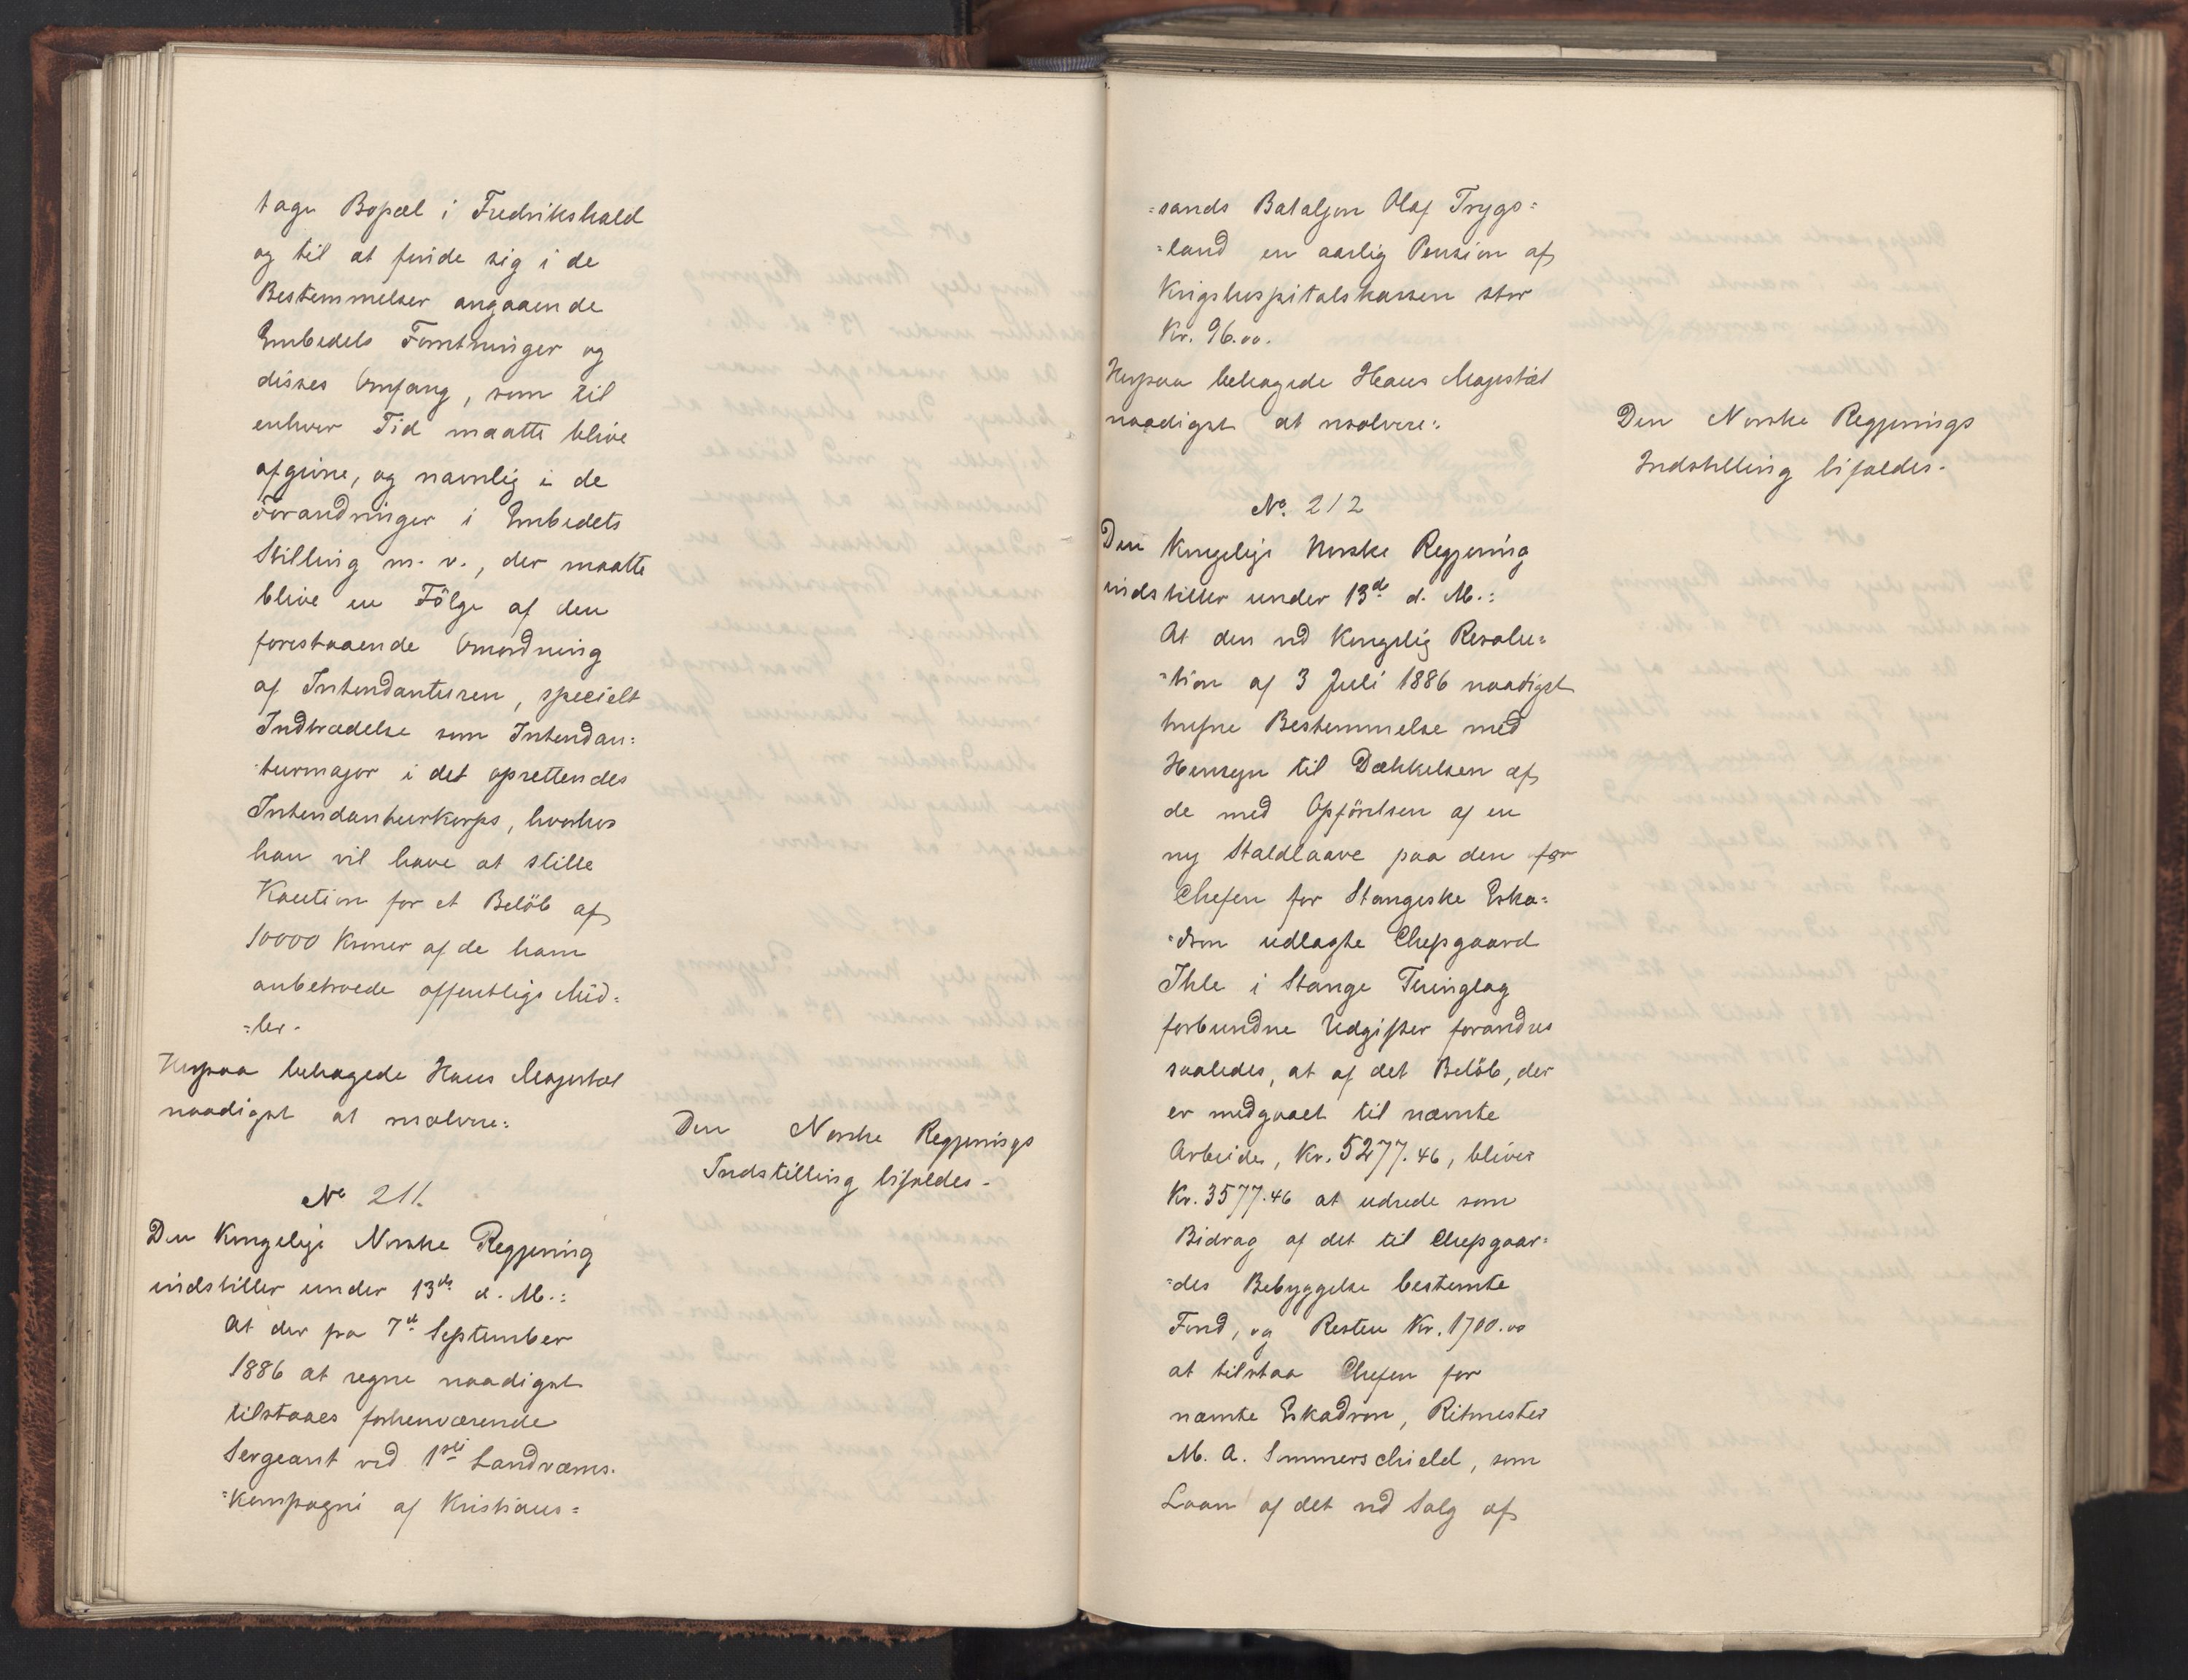 tage Bopæl i Fredrikshald
og til at finde sig i de
Bestemmelser angaaende
Embedets Forretninger og
disses Omfang, som til
enhver Tid maatte blive
afgivne, og navnlig i de
Forandringer i Embedets
Stilling m. v., der maatte
blive en Følge af den
forestaaende Omordning
af Intendanturen, specielt
Indtrædelse som Intendan=
=turmajor i det oprettendes
Intendanturkorps, hvorhos
han vil have at stille
Kaution for et Beløb af
10000 Kroner af de ham
anbetroede offentlige Mid=
=ler.
Herpaa behagede Hans Majestæt
naadigst at resolvere:
Den Norske Regjerings
Indstilling bifaldes.
No 211.
Den Kongelige Norske Regjering
indstiller under 13de d. M.:
At der fra 7de September
1886 at regne naadigst
tilstaaes forhenværende
Sergeant ved 1ste Landværns=
=kompagni af Kristians=
=sands Bataljon Olaf Trygs=
=land en aarlig Pension af
Krigshospitalskassen stor
Kr. 96.00.
Herpaa behagede Hans Majestæt
naadigst at resolvere:
Den Norske Regjerings
Indstilling bifaldes.
No. 212
Den Kongelige Norske Regjering
indstiller under 13de d. M.:
At den ved Kongelig Resolu=
=tion af 3 Juli 1886 naadigst
trufne Bestemmelse med
Hensyn til Dækkelsen af
de med Opførelsen af en
ny Staldlaave paa den for
Chefen for Stangeske Eska=
=dron udlagte Chefsgaard
Ihle i Stange Thinglag
forbundne Udgifter forandres
saaledes, at af det Beløb, der
er medgaaet til nævnte
Arbeide, Kr. 5277.46, bliver
Kr. 3577.46 at udrede som
Bidrag af det til Chefsgaar=
=des Bebyggelse bestemte
Fond, og Resten Kr. 1700.00
at tilstaa Chefen for
nævnte Eskadron, Ritmester
M. A. Sommerschield, som
Laan af det ved Salg af